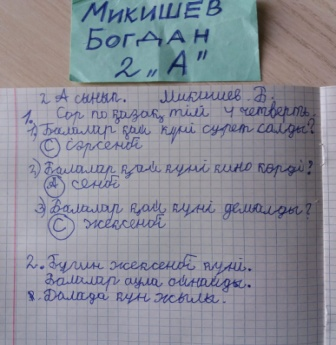 МИКИШЕВ
БОГДАН
2 „А"
2 А сынып. Микишев Б.
1. Сор по қазақ тілі 4 четверть
1) Балалар қай күні сурет салды?
С сәрсенбі
2) Балалар қай күні кино көрді?
А сенбі
3) Балалар қай күні демалды?
С жексенбі
2. Бүгін жексенбі күні.
Балалар аула ойнайды.
Далада күн жылы.